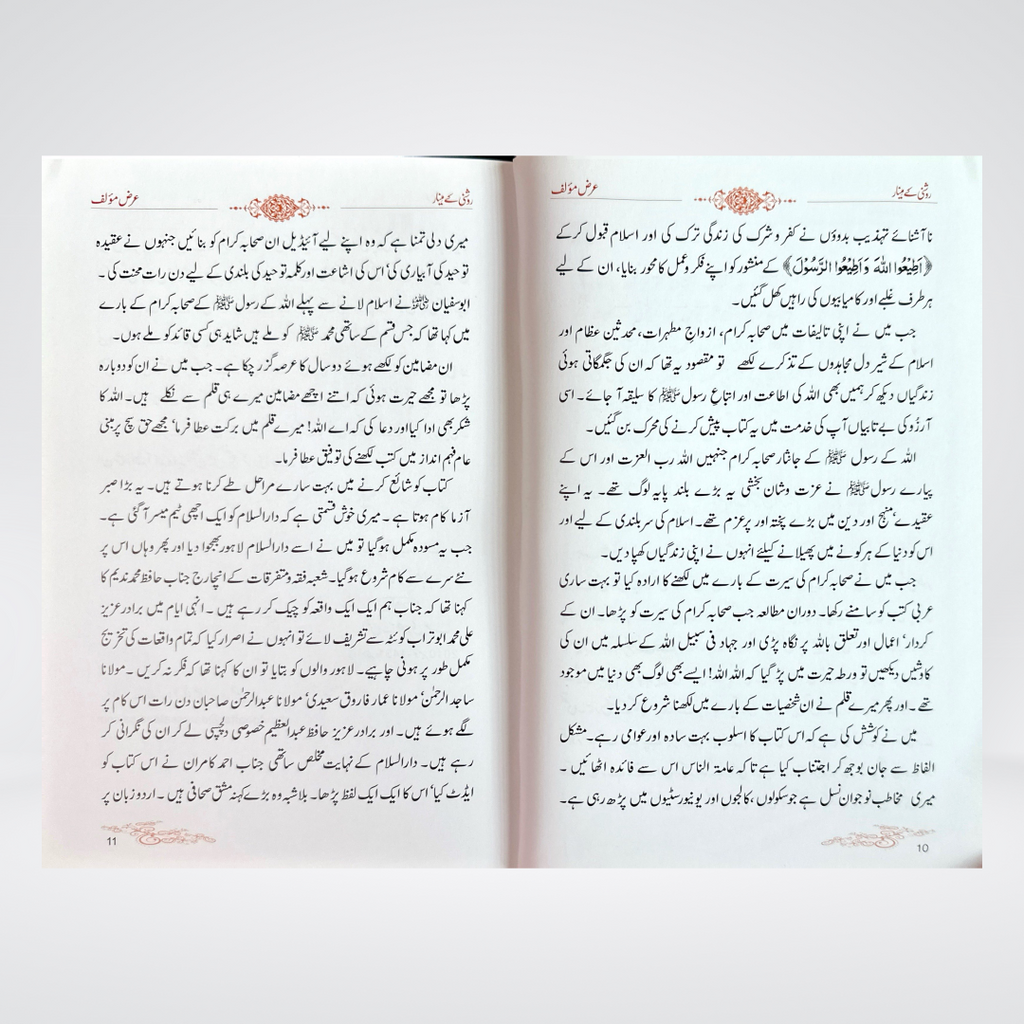 روشنی کے مینار
عرض مؤلف
ناآشنائے تہذیب بدوؤں نے کفر و شرک کی زندگی ترک کی اور اسلام قبول کر کے
﴿اَطِیْعُوا اللّٰہَ وَ اَطِیْعُوا الرَّسُوْلَ﴾ کے منشور کو اپنے فکر و عمل کا محور بنایا، ان کے لیے
ہر طرف غلبے اور کامیابیوں کی راہیں کھل گئیں۔
جب میں نے اپنی تالیفات میں صحابہ کرام، ازواجِ مطہرات، محدثین عظام اور
اسلام کے شیر دل مجاہدوں کے تذکرے لکھے تو مقصود یہ تھا کہ ان کی جگمگاتی ہوئی
زندگیاں دیکھ کر ہمیں بھی اللہ کی اطاعت اور اتباعِ رسول ﷺ کا سلیقہ آ جائے۔ اسی
آرزُو کی بے تابیاں آپ کی خدمت میں یہ کتاب پیش کرنے کی محرک بن گئیں۔
اللہ کے رسول ﷺ کے جانثار صحابہ کرام جنہیں اللہ رب العزت اور اس کے
پیارے رسول ﷺ نے عزت و شان بخشی یہ بڑے بلند پایہ لوگ تھے۔ یہ اپنے
عقیدے‘ منہج اور دین میں بڑے پختہ اور پرعزم تھے۔ اسلام کی سربلندی کے لیے اور
اس کو دنیا کے ہر کونے میں پھیلانے کیلئے انہوں نے اپنی زندگیاں کھپا دیں۔
جب میں نے صحابہ کرام کی سیرت کے بارے میں لکھنے کا ارادہ کیا تو بہت ساری
عربی کتب کو سامنے رکھا۔ دوران مطالعہ جب صحابہ کرام کی سیرت کو پڑھا۔ ان کے
کردار‘ اعمال اور تعلق باللہ پر نگاہ پڑی اور جہاد فی سبیل اللہ کے سلسلہ میں ان کی
کاوشیں دیکھیں تو ورطہ حیرت میں پڑ گیا کہ اللہ اللہ! ایسے بھی لوگ بھی دنیا میں موجود
تھے۔ اور پھر میرے قلم نے ان شخصیات کے بارے میں لکھنا شروع کر دیا۔
میں نے کوشش کی ہے کہ اس کتاب کا اسلوب بہت سادہ اور عوامی رہے۔ مشکل
الفاظ سے جان بوجھ کر اجتناب کیا ہے تاکہ عامۃ الناس اس سے فائدہ اٹھائیں۔
میری مخاطب نوجوان نسل ہے جو سکولوں، کالجوں اور یونیورسٹیوں میں پڑھ رہی ہے۔
10
روشنی کے مینار
عرض مؤلف
میری دلی تمنا ہے کہ وہ اپنے لیے آئیڈیل ان صحابہ کرام کو بنائیں جنہوں نے عقیدہ
توحید کی آبیاری کی‘ اس کی اشاعت اور کلمہ توحید کی بلندی کے لیے دن رات محنت کی۔
ابوسفیان نے اسلام لانے سے پہلے اللہ کے رسول ﷺ کے صحابہ کرام کے بارے
میں کہا تھا کہ جس قسم کے ساتھی محمد ﷺ کو ملے ہیں شاید ہی کسی قائد کو ملے ہوں۔
ان مضامین کو لکھے ہوئے دو سال کا عرصہ گزر چکا ہے۔ جب میں نے ان کو دوبارہ
پڑھا تو مجھے حیرت ہوئی کہ اتنے اچھے مضامین میرے ہی قلم سے نکلے ہیں۔ اللہ کا
شکر بھی ادا کیا اور دعا کی کہ اے اللہ! میرے قلم میں برکت عطا فرما‘ مجھے حق سچ پر مبنی
عام فہم انداز میں کتب لکھنے کی توفیق عطا فرما۔
کتاب کو شائع کرنے میں بہت سارے مراحل طے کرنا ہوتے ہیں۔ یہ بڑا صبر
آزما کام ہوتا ہے۔ میری خوش قسمتی ہے کہ دارالسلام کو ایک اچھی ٹیم میسر آ گئی ہے۔
جب یہ مسودہ مکمل ہو گیا تو میں نے اسے دارالسلام لاہور بھجوا دیا اور پھر وہاں اس پر
نئے سرے سے کام شروع ہو گیا۔ شعبہ فقہ و متفرقات کے انچارج جناب حافظ محمد ندیم کا
کہنا تھا کہ جناب ہم ایک ایک واقعہ کو چیک کر رہے ہیں۔ انہی ایام میں برادر عزیز
علی محمد ابوتراب کوئٹہ سے تشریف لائے تو انہوں نے اصرار کیا کہ تمام واقعات کی تخریج
مکمل طور پر ہونی چاہیے۔ لاہور والوں کو بتایا تو ان کا کہنا تھا کہ فکر نہ کریں۔ مولانا
ساجد الرحمٰن‘ مولانا عمار فاروق سعیدی‘ مولانا عبدالرحمٰن صاحبان دن رات اس کام پر
لگے ہوئے ہیں۔ اور برادر عزیز حافظ عبدالعظیم خصوصی دلچسپی لے کر ان کی نگرانی کر
رہے ہیں۔ دارالسلام کے نہایت مخلص ساتھی جناب احمد کامران نے اس کتاب کو
ایڈٹ کیا‘ اس کا ایک ایک لفظ پڑھا۔ بلاشبہ وہ بڑے کہنہ مشق صحافی ہیں۔ اردو زبان پر
11